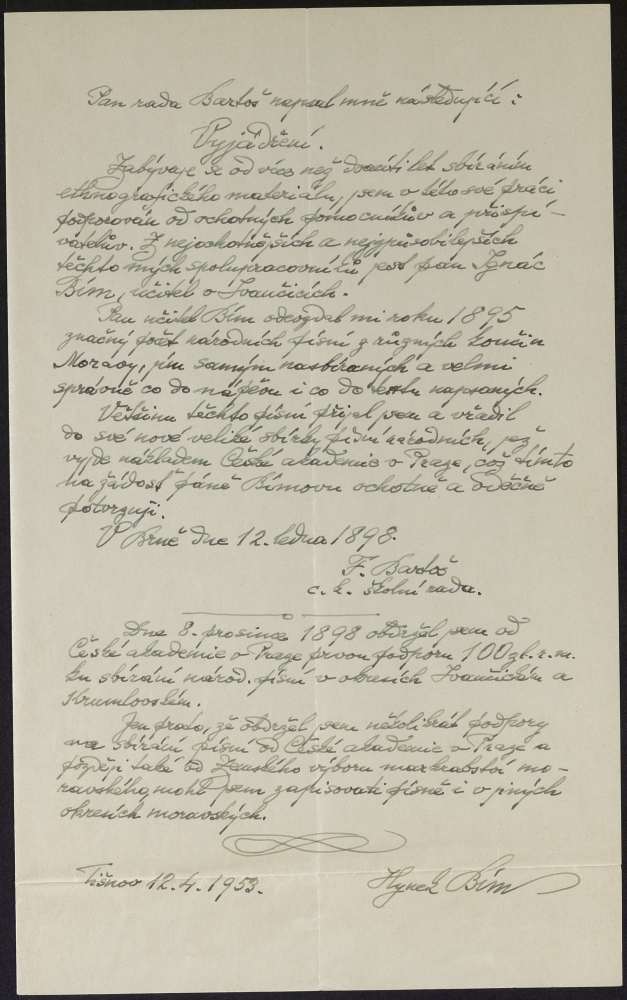 Pan rada Bartoš napsal mně následující:
Vyjádření.
Zabývaje se od více než dvaceti let sbíráním
ethnografického materiálu, jsem v této své práci
podporován od ochotných pomocníkův a přispí-
vatelův. Z nejochotnějších a nejzpůsobilejších
těchto mých spolupracovníků jest pan Ignác
Bím, učitel v Ivančicích.
Pan učitel Bím odevzdal mi roku 1895
značný počet národních písní z různých končin
Moravy, jím samým nasbíraných a velmi
správně co do nápěvu i co do textu napsaných.
Většinu těchto písní přijal jsem a vřadil
do své nové veliké sbírky písní národních, jež
vyjde nákladem České akademie v Praze, což tímto
na žádost páně Bímovu ochotně a vděčně
potvrzuji.
V Brně dne 12. ledna 1898.
F. Bartoš
c. k. školní rada.
Dne 8. prosince 1898 obdržel jsem od
České akademie v Praze prvou podporu 100 zl. r. m.
ku sbírání národ. písní v okresích Ivančickém a
Krumlovském.
Jen proto, že obdržel jsem několikrát podpory
na sbírání písní od České akademie v Praze a
později také od Zemského výboru markrabství mo-
ravského, mohl jsem zapisovati písně i v jiných
okresích moravských.
Tišnov 12.4.1953.
Hynek Bím